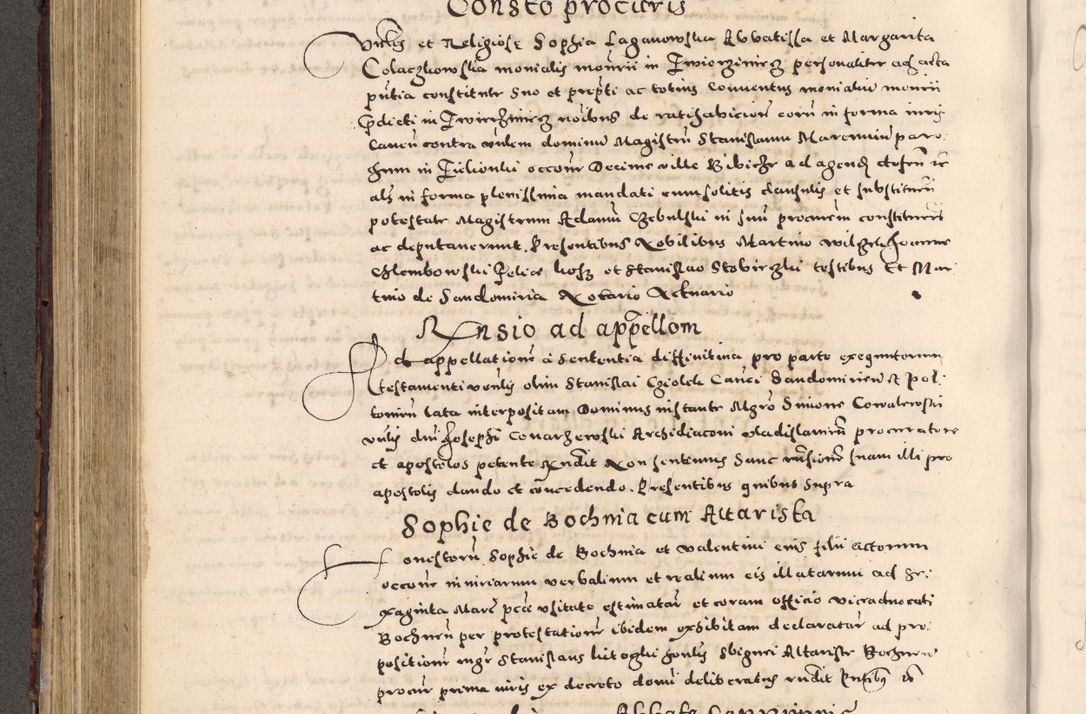 Consto procuris
Vnblis et Religiose Sophia Laganowska Abbatissa et Margarita
Colaczkowska monialis monrii in Zwierziniecz personaliter ad acta
pntia constitute suo et prefti ac totius Conuentus monialiu monrii
pdicti in Zwierziniecz noibus de ratihabicion eoru in forma iuris
Cauen contra eundem dominu Magistru Stanislaum Marenium paro
chum in Zielionki occone Decime ville Bibicze ad agend
als in forma plenissima mandati cum solitis clausulis et substituen
potestate Magistrum Adamu Czebulski in suu procurem constituerunt
ac deputauerunt. Presentibus Nobilibus Martino Joanne
Chlembowski Felice et Stanislao testibus Et Mar
tino de Sandomiria Notario Actuario
Rnsio ad appellom
Ad appellatione a sententia diffinitiua pro parte exequutorum
testamenti venlis olim Stanislai Cziolek Canci Sandomirien et Pol
tomien lata interpositam Dominus instante Mgro Simone Cowalewski
vnlis dni Josephi Conarzewski Archidiaconi Vladislauien procuratore
et apostolos petente Rndit Non sentimus hanc rnsione suam illi pro
apostolis dando et concedendo. Presentibus quibus supra
Sophie de Bochnia cum Altarista
Honestoru Sophie de Bochnia et Valentini eius filii actorum
occone iniuriarum verbalium et realium eis illatarum ad se:
xaginta Marc pcu vsitate estimatar et coram officio viceaduocati
Bochnen per protestatione ibidem exhibitam declaratar ad pro:
positione mgr Stanislaus Altariste Bochnen
procur prima iuris ex decreto domi deliberatus rndit Pntibus